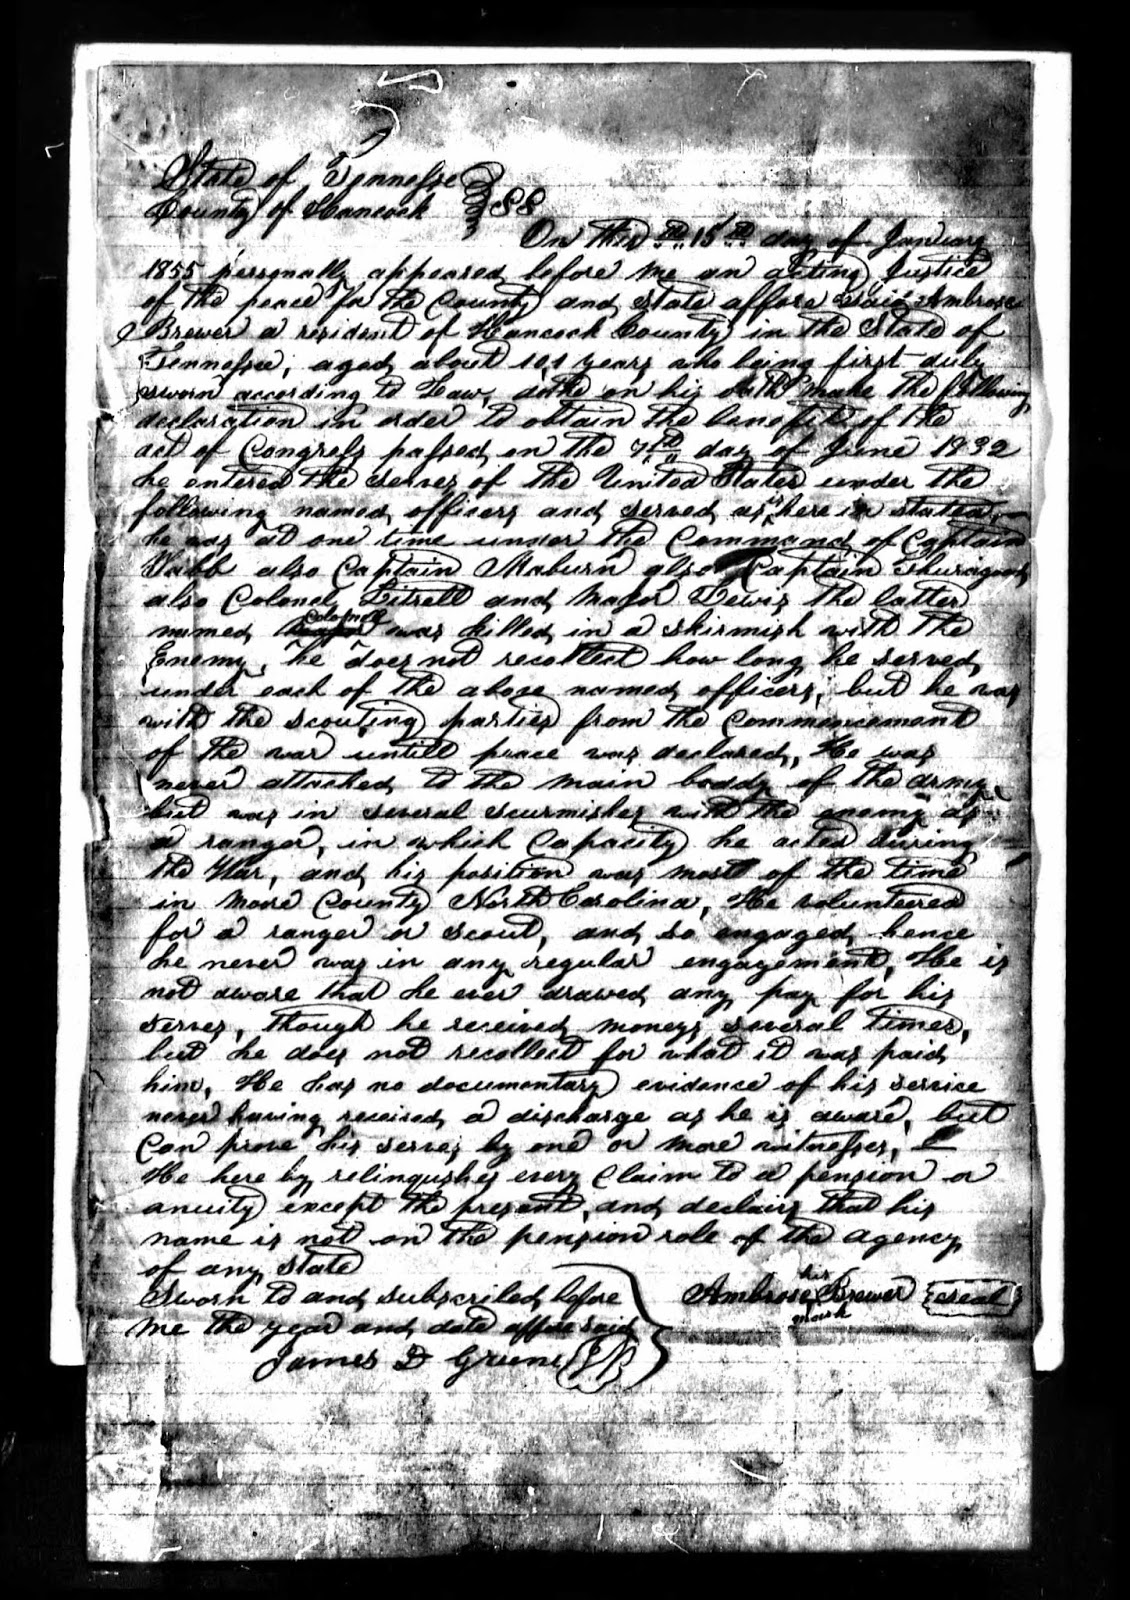 State of Tennessee
County of Hancock } SS
On this 15th day of January
1855 personally appeared before me an acting Justice
of the peace for the County and State affore Said Ambrose
Brewer a resident of Hancock County in the State of
Tennessee, aged about 101 years who being first duly
sworn according to Law, dothe on his oath make the following
declaration in order to obtain the benefits of the
act of Congress passed on the 7th day of June 1832
he entered the serves of the United States under the
following named officers and served as is here in stated,
he was at one time under the Command of Captain
also Captain Maburn also Captain
also Colonel Litrell and Major Lewis the latter
named Colonel was killed in a skirmish with the
Enemy, he does not recollect how long he served
under each of the above named officers, but he was
with the scouting parties from the Commencement
of the war untill peace was declared, He was
never attached to the main boddy of the army
but was in several scurmishes with the enemy as
a ranger, in which Capacity he acted during
the War, and his position was most of the time
in More County North Carolina, He volunteered
for a ranger or scout, and so engaged hence
he never was in any regular engagement, He is
not aware that he ever drawed any pay for his
serves, though he received moneys several times,
but he does not recollect for what it was paid
him, He has no documentary evidence of his service
never having received a discharge as he is aware, but
Can prove his serves by one or more witnesses,
He here by relinqushes every Claim to a pension or
anuity except the present, and declairs that his
name is not on the pension role of the agency
of any state
Sworn to and subscribed before
me the year and date affore said
Ambrose his mark Brewer seal
James D Greene JP